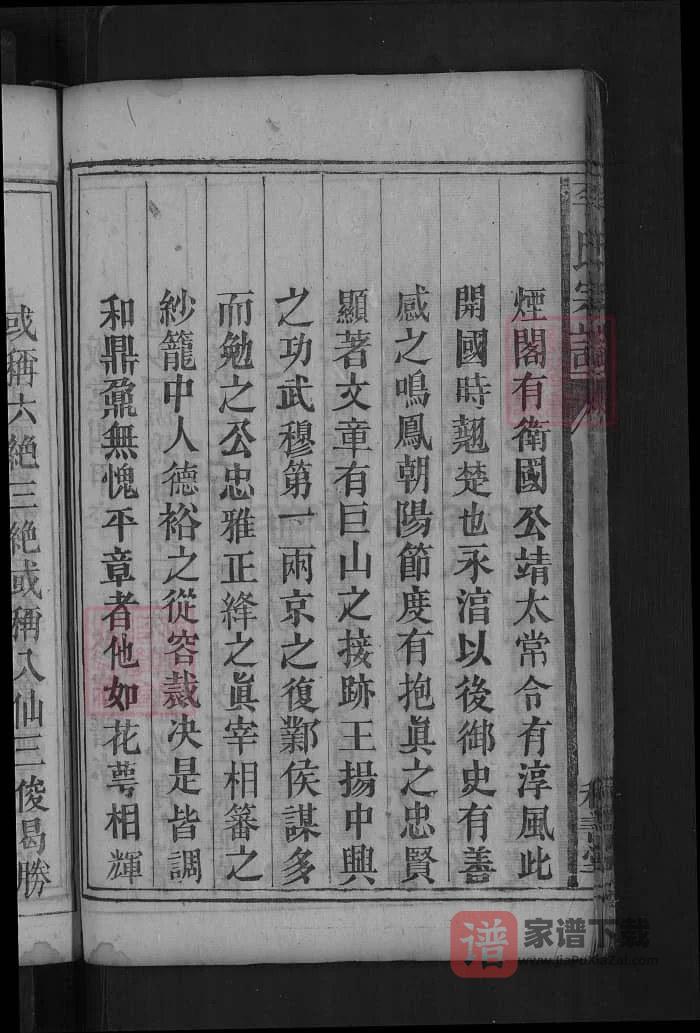 氏宗譜
煙閣有衛國公靖太常令有淳風此
開國時翹楚也永湻以後御史有善
感之鳴鳳朝陽節度有抱眞之忠賢
顯著文章有巨山之接跡王揚中興
之功武穆第一兩京之復鄴侯謀多
而勉之公忠雅正絳之眞宰相籓之
紗籠中人德裕之從容裁决是皆調
和鼎鼐無愧平章者他如花萼相輝
或稱六絶三絶或稱八仙三俊曷勝
谱 家谱下载
www.jiaPuXiaZai.com